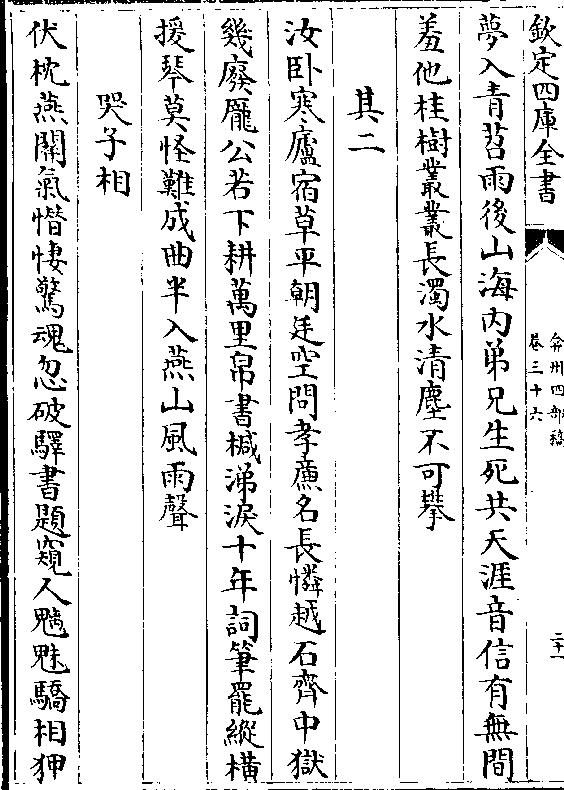 欽定四庫全書
弇州四部稿
卷三十六
二十一
夢入青苔雨後山海内弟兄生死共天涯音信有無間
羞他桂樹叢叢長濁水清塵不可攀
其二
汝卧寒廬宿草平朝廷空問孝亷名長憐越石齊中獄
幾廢龎公若下耕萬里帛書椷涕淚十年詞筆罷縱橫
援琴莫怪難成曲半入燕山風雨聲
哭子相
伏枕燕關氣惨悽驚魂忽破驛書題窺人魑魅驕相狎